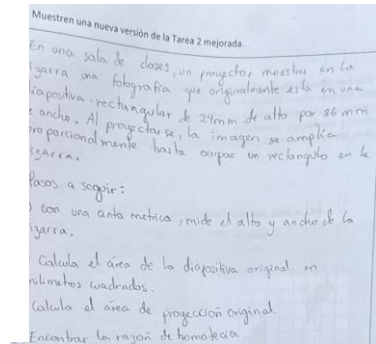 Muestren una nueva versión de la Tarea 2 mejorada.
En una sala de clases, un proyector muestra en la
izarra una fotografía que originalmente esta en una
iapositiva rectangular de 24mm de alto por 36 mm
e ancho. Al proyectarse, la imagen se amplía
roporcionalmente hasta ocupar un rectangulo en la
izarra.
Pasos a seguir:
) con una cinta metrica, mide el alto y ancho de la
izarra.
Calcula el área de la diapositiva original en
milimetros cuadrados.
Calcula el área de proyección original.
Encontrar la razón de homotecia